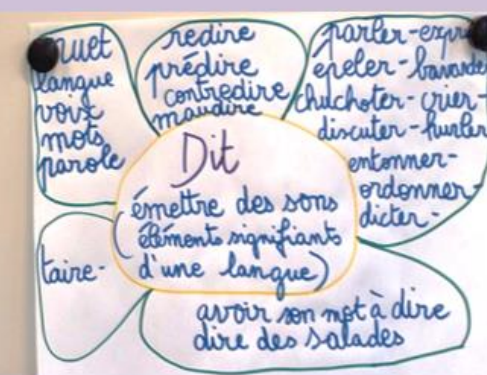 muet
langue
voix
mots
parole
redire
prédire
contredire
maudire
parler-
épeler-
chuchoter-crier-
discuter-hurler
entonner-
ordonner-
dicter-
Dit
émettre des sons
(éléments signifiants
d'une langue)
taire-
avoir son mot à dire
dire des salades